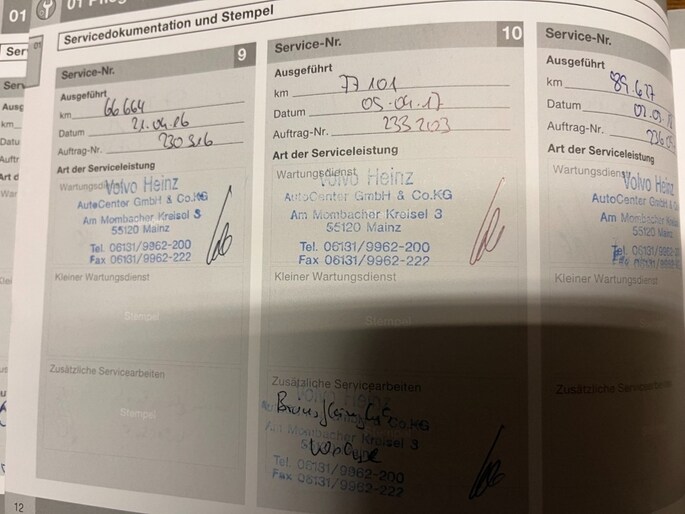 01
01
Servicedokumentation und Stempel
01
Service-Nr. 9
Ausgeführt
km 66 664
Datum 21.04.16
Auftrag-Nr. 230 316
Art der Serviceleistung
Wartungsdienst
Volvo Heinz
AutoCenter GmbH & Co.KG
Am Mombacher Kreisel 3
55120 Mainz
Tel. 06131/9962-200
Fax 06131/9962-222
Kleiner Wartungsdienst
Stempel
Zusätzliche Servicearbeiten
Stempel
12
Service-Nr. 10
Ausgeführt
km 77 101
Datum 05.04.17
Auftrag-Nr. 233 203
Art der Serviceleistung
Wartungsdienst
Volvo Heinz
AutoCenter GmbH & Co.KG
Am Mombacher Kreisel 3
55120 Mainz
Tel. 06131/9962-200
Fax 06131/9962-222
Kleiner Wartungsdienst
Stempel
Zusätzliche Servicearbeiten
Volvo Heinz
Co.KG
Am Mombacher Kreisel 3
Tel. 06131/9962-200
Fax 06131/9962-222
Service-Nr.
Ausgeführt
km 89.677
Datum
Auftrag-Nr.
Art der Serviceleistung
Wartungsdienst
Volvo Heinz
AutoCenter GmbH &
Am Mombacher
55120 M
Tel. 06131/9962-
Kleiner Wartungsdienst
Zusätzliche Servicearbeiten